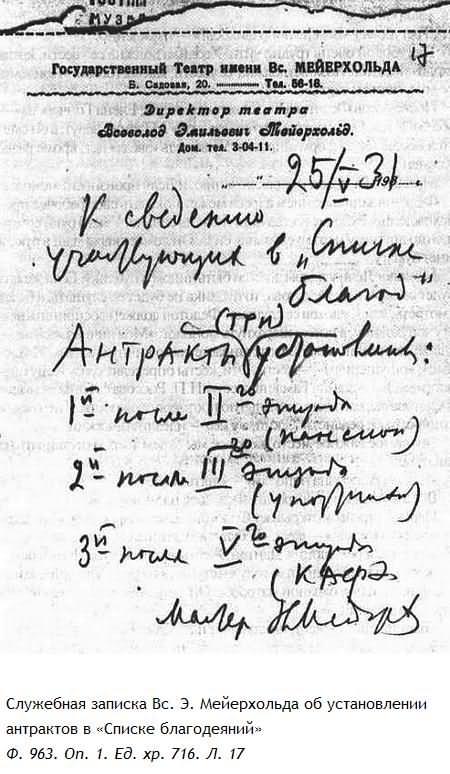 МУЗЕ
17
Государственный Театр имени Вс. МЕЙЕРХОЛЬДА
Б. Садовая, 20. Тел. 56-18.
Директор театра
Всеволод Эмильевич Мейерхольд.
Дом. тел. 3-04-11.
25/V 31 193
К сведению
участвующих в „Списке
благод"
(три)
Антракты установлены:
1й после II го эпизода
(пансион)
2й после III го эпизода
(у портнихи)
3й после V го эпизода
(КАФЭ
Служебная записка Вс. Э. Мейерхольда об установлении
антрактов в «Списке благодеяний»
Ф. 963. Оп. 1. Ед. хр. 716. Л. 17